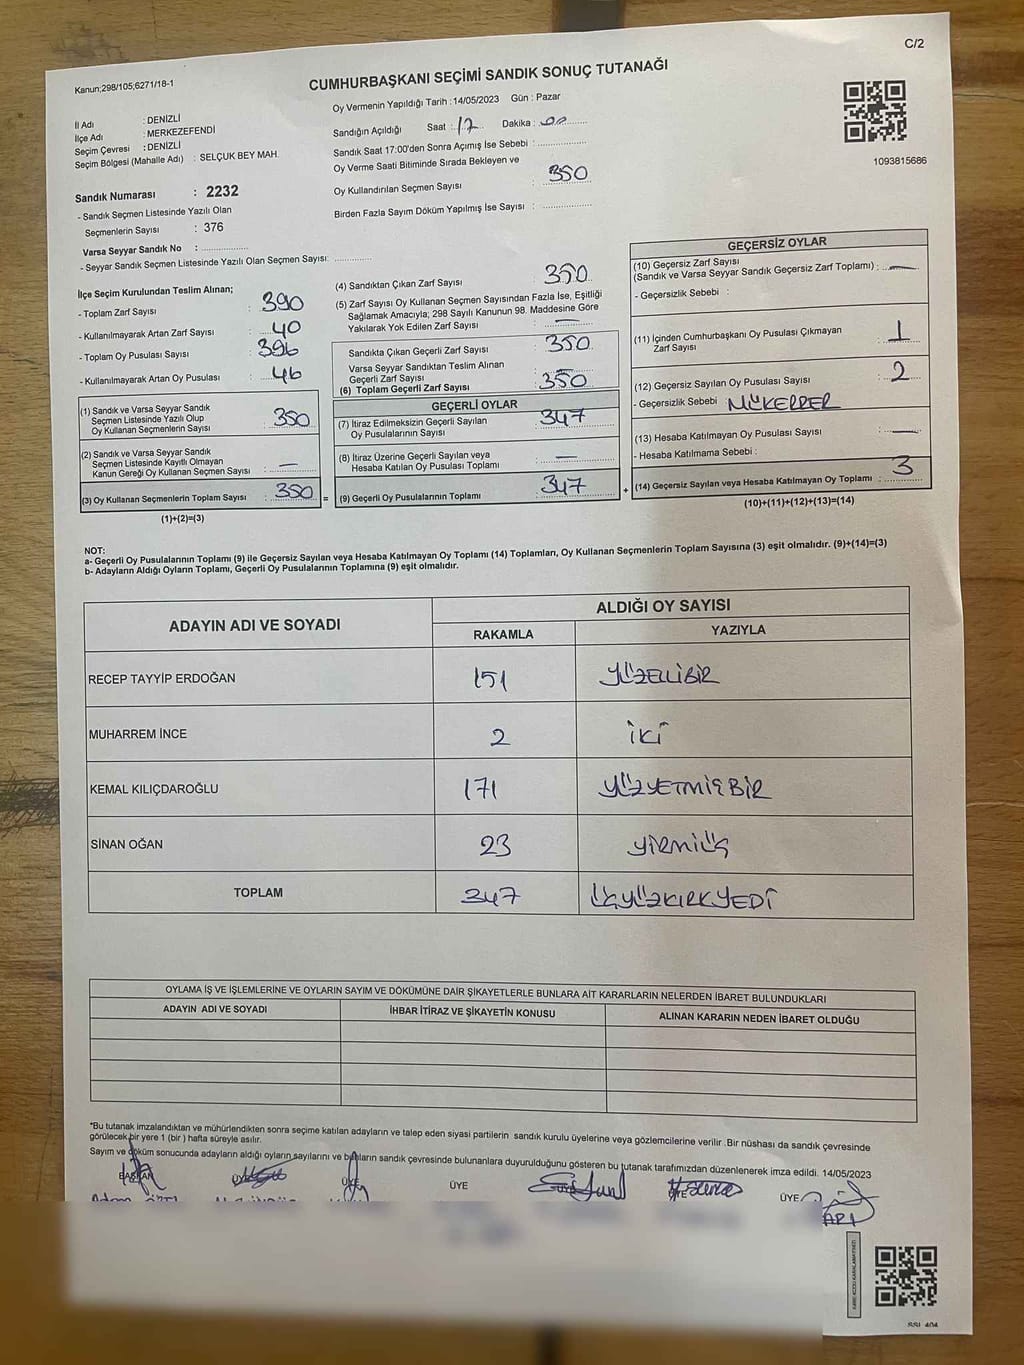 C/2
Kanun;298/105;6271/18-1
CUMHURBAŞKANI SEÇİMİ SANDIK SONUÇ TUTANAĞI
İl Adı : DENİZLİ
İlçe Adı : MERKEZEFENDİ
Seçim Çevresi : DENİZLİ
Seçim Bölgesi (Mahalle Adı) : SELÇUK BEY MAH.
Sandık Numarası : 2232
- Sandık Seçmen Listesinde Yazılı Olan
Seçmenlerin Sayısı : 376
Varsa Seyyar Sandık No : ..................
- Seyyar Sandık Seçmen Listesinde Yazılı Olan Seçmen Sayısı: ..............
Oy Vermenin Yapıldığı Tarih : 14/05/2023 Gün : Pazar
Sandığın Açıldığı Saat : 17 Dakika : 00
Sandık Saat 17:00'den Sonra Açımış İse Sebebi : ..................
Oy Verme Saati Bitiminde Sırada Bekleyen ve
Oy Kullandırılan Seçmen Sayısı : 350
Birden Fazla Sayım Döküm Yapılmış İse Sayısı : ..................
1093815686
İlçe Seçim Kurulundan Teslim Alınan;
- Toplam Zarf Sayısı : 390
- Kullanılmayarak Artan Zarf Sayısı : 40
- Toplam Oy Pusulası Sayısı : 396
- Kullanılmayarak Artan Oy Pusulası : 46
(1) Sandık ve Varsa Seyyar Sandık
Seçmen Listesinde Yazılı Olup
Oy Kullanan Seçmenlerin Sayısı : 350
(2) Sandık ve Varsa Seyyar Sandık
Seçmen Listesinde Kayıtlı Olmayan
Kanun Gereği Oy Kullanan Seçmen Sayısı : —
(3) Oy Kullanan Seçmenlerin Toplam Sayısı : 350 =
(1)+(2)=(3)
(4) Sandıktan Çıkan Zarf Sayısı : 350
(5) Zarf Sayısı Oy Kullanan Seçmen Sayısından Fazla İse, Eşitliği
Sağlamak Amacıyla; 298 Sayılı Kanunun 98. Maddesine Göre
Yakılarak Yok Edilen Zarf Sayısı : —
Sandıkta Çıkan Geçerli Zarf Sayısı : 350
Varsa Seyyar Sandıktan Teslim Alınan
Geçerli Zarf Sayısı
(6) Toplam Geçerli Zarf Sayısı : 350
GEÇERLİ OYLAR
(7) İtiraz Edilmeksizin Geçerli Sayılan
Oy Pusulalarının Sayısı : 347
(8) İtiraz Üzerine Geçerli Sayılan veya
Hesaba Katılan Oy Pusulası Toplamı : —
(9) Geçerli Oy Pusulalarının Toplamı : 347 +
GEÇERSİZ OYLAR
(10) Geçersiz Zarf Sayısı
(Sandık ve Varsa Seyyar Sandık Geçersiz Zarf Toplamı) : —
- Geçersizlik Sebebi :
(11) İçinden Cumhurbaşkanı Oy Pusulası Çıkmayan
Zarf Sayısı : 1
(12) Geçersiz Sayılan Oy Pusulası Sayısı : 2
- Geçersizlik Sebebi : MÜKERRER
(13) Hesaba Katılmayan Oy Pusulası Sayısı : —
- Hesaba Katılmama Sebebi :
(14) Geçersiz Sayılan veya Hesaba Katılmayan Oy Toplamı : 3
(10)+(11)+(12)+(13)=(14)
NOT:
a- Geçerli Oy Pusulalarının Toplamı (9) ile Geçersiz Sayılan veya Hesaba Katılmayan Oy Toplamı (14) Toplamları, Oy Kullanan Seçmenlerin Toplam Sayısına (3) eşit olmalıdır. (9)+(14)=(3)
b- Adayların Aldığı Oyların Toplamı, Geçerli Oy Pusulalarının Toplamına (9) eşit olmalıdır.
ADAYIN ADI VE SOYADI ALDIĞI OY SAYISI
RAKAMLA YAZIYLA
RECEP TAYYİP ERDOĞAN 151 YÜZELLİBİR
MUHARREM İNCE 2 İKİ
KEMAL KILIÇDAROĞLU 171 YÜZYETMİŞBİR
SİNAN OĞAN 23 YİRMİÜÇ
TOPLAM 347 ÜÇYÜZKIRKYEDİ
OYLAMA İŞ VE İŞLEMLERİNE VE OYLARIN SAYIM VE DÖKÜMÜNE DAİR ŞİKAYETLERLE BUNLARA AİT KARARLARIN NELERDEN İBARET BULUNDUKLARI
ADAYIN ADI VE SOYADI İHBAR İTİRAZ VE ŞİKAYETİN KONUSU ALINAN KARARIN NEDEN İBARET OLDUĞU
*Bu tutanak imzalandıktan ve mühürlendikten sonra seçime katılan adayların ve talep eden siyasi partilerin sandık kurulu üyelerine veya gözlemcilerine verilir .Bir nüshası da sandık çevresinde
görülecek bir yere 1 (bir ) hafta süreyle asılır.
Sayım ve döküm sonucunda adayların aldığı oyların sayılarını ve bunların sandık çevresinde bulunanlara duyurulduğunu gösteren bu tutanak tarafımızdan düzenlenerek imza edildi. 14/05/2023
BAŞKAN ÜYE ÜYE ÜYE ÜYE ÜYE ÜYE